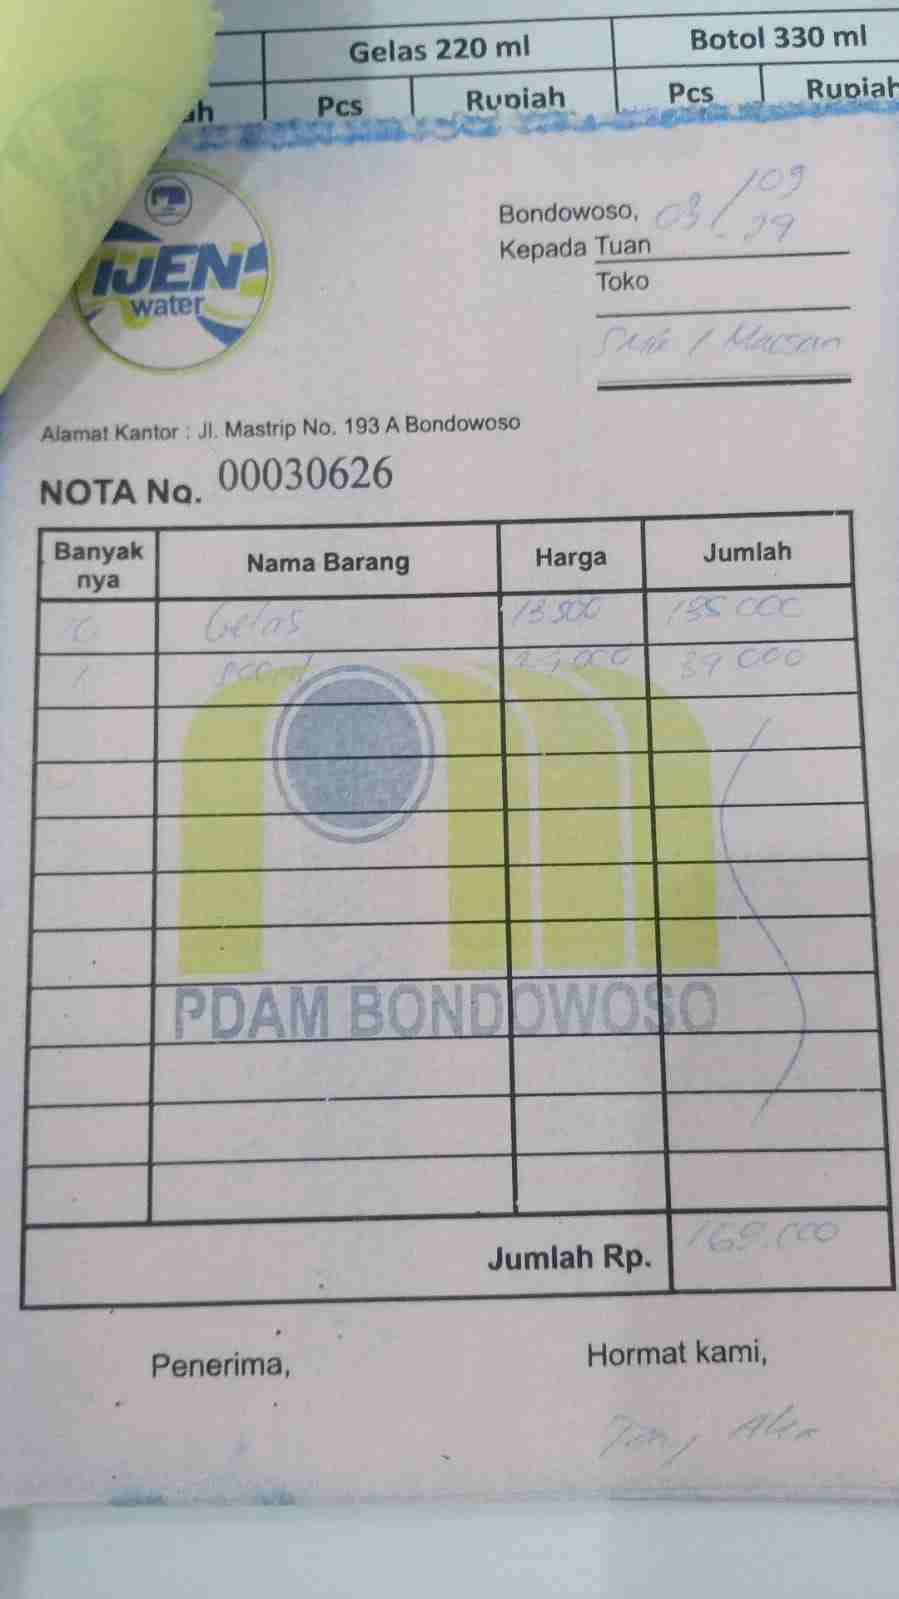 Gelas 220 ml Botol 330 ml
ah Pcs Rupiah Pcs Rupiah
IJEN
water
Bondowoso, 03/09
Kepada Tuan
Toko
Alamat Kantor : Jl. Mastrip No. 193 A Bondowoso
NOTA No. 00030626
Banyak nya Nama Barang Harga Jumlah
10 Gelas 13 500 135 000
1 000 34 000
PDAM BONDOWOSO
Jumlah Rp. 169.000
Penerima, Hormat kami,